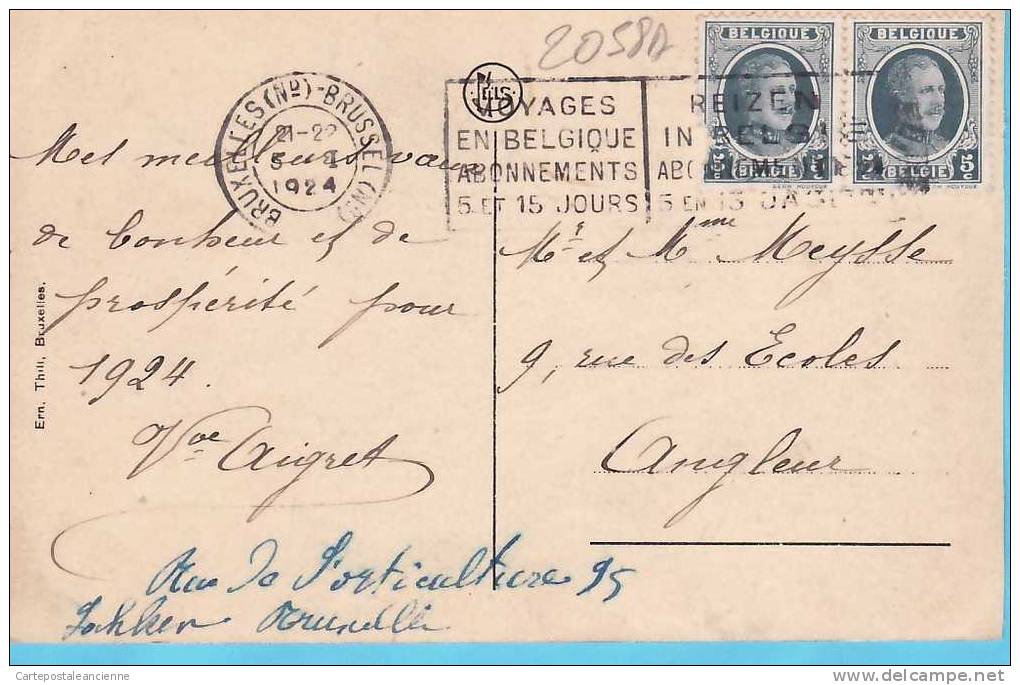 2058A
BELGIQUE
BELGIQUE
5c 5c
5c 5c
BELGIË
BELGIË
BRUXELLES (Nd)-BRUSSEL (N)
21-22
1924
NELS
VOYAGES
EN BELGIQUE
ABONNEMENTS
5 ET 15 JOURS
REIZEN
IN BELGIE
5 EN 15 DAGEN
Mes meilleurs vœux
de bonheur et de
prospérité pour
1924.
Vve Aigret
Rue de l'orticulture 95
Laken Bruxelles
Mr et Mme Meysse
9, rue des Ecoles
Angleur
Ern. Thill, Bruxelles.
Cartepostaleancienne
www.delcampe.net